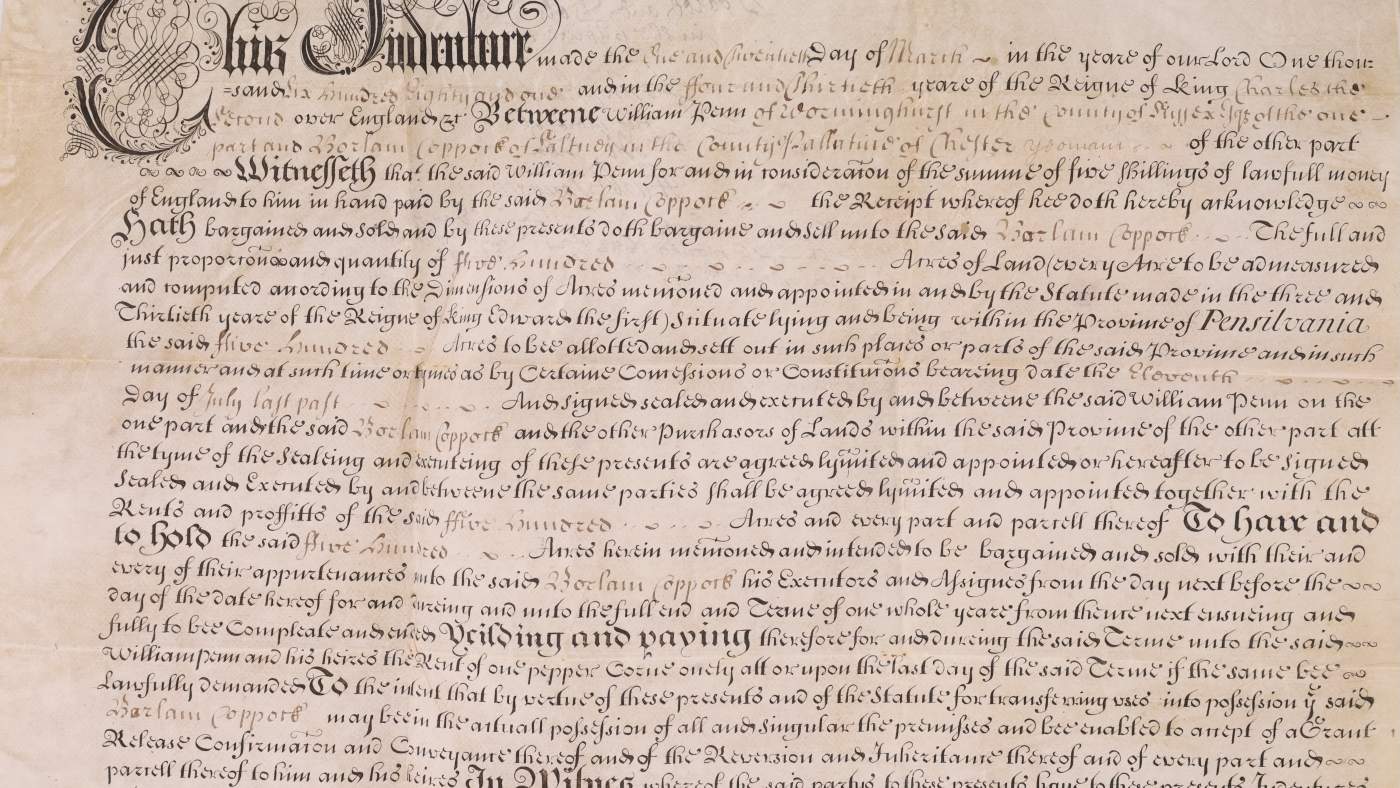 This Indenture made the One and Twentieth Day of March in the yeare of our Lord One thou=
=sand Six Hundred Eighty and one and in the ffour and Thirtieth yeare of the Reigne of King Charles the
Second over England &c Betweene William Penn of Worminghurst in the County of Sussex Esqr of the one
part and Borlam Coppock of Saltney in the County Pallatine of Chester yeoman of the other part
Witnesseth that the said William Penn for and in consideracon of the summe of five shillings of lawfull money
of England to him in hand paid by the said Borlam Coppock the Receipt whereof hee doth hereby acknowledge
Hath bargained and sold and by these presents doth bargaine and sell unto the said Borlam Coppock The full and
just proporcon and quantity of ffive Hundred Acres of Land (every Acre to be admeasured
and computed according to the Dimensions of Acres menconed and appointed in and by the Statute made in the three and
Thirtieth yeare of the Reigne of King Edward the first) Scituate lying and being within the Province of Pensilvania
the said ffive Hundred Acres to bee allotted and sett out in such places or parts of the said Province and in such
manner and at such time or tymes as by Certaine Concessions or Constitucons beareing date the Eleventh
Day of July last past And signed sealed and executed by and betweene the said William Penn on the
one part and the said Borlam Coppock and the other Purchasors of Lands within the said Province of the other part att
the tyme of the Sealeing and executeing of these presents are agreed lymited and appointed or hereafter to be signed
Sealed and Executed by and betweene the same parties shall be agreed lymited and appointed together with the
Rents and proffitts of the said ffive Hundred Acres and every part and parcell thereof To have and
to hold the said ffive Hundred Acres herein menconed and intended to be bargained and sold with their and
every of their appurtenances unto the said Borlam Coppock his Executors and Assignes from the day next before the
day of the date hereof for and dureing and unto the full end and Terme of one whole yeare from thence next ensueing and
fully to bee Compleate and ended Yeilding and paying therefore for and dureing the said Terme unto the said
William Penn and his heires the Rent of one pepper Corne onely att or upon the last day of the said Terme if the same bee
Lawfully demanded To the intent that by vertue of these presents and of the Statute for transferring uses into possession ye said
Borlam Coppock may bee in the actuall possession of all and singular the premisses and bee enabled to accept of a Grant
Release Confirmacon and Conveyance thereof and of the Reversion and Inheritance thereof and of every part and
parcell thereof to him and his heires In Witnes whereof the said partys to these presents have to these presents Indentures